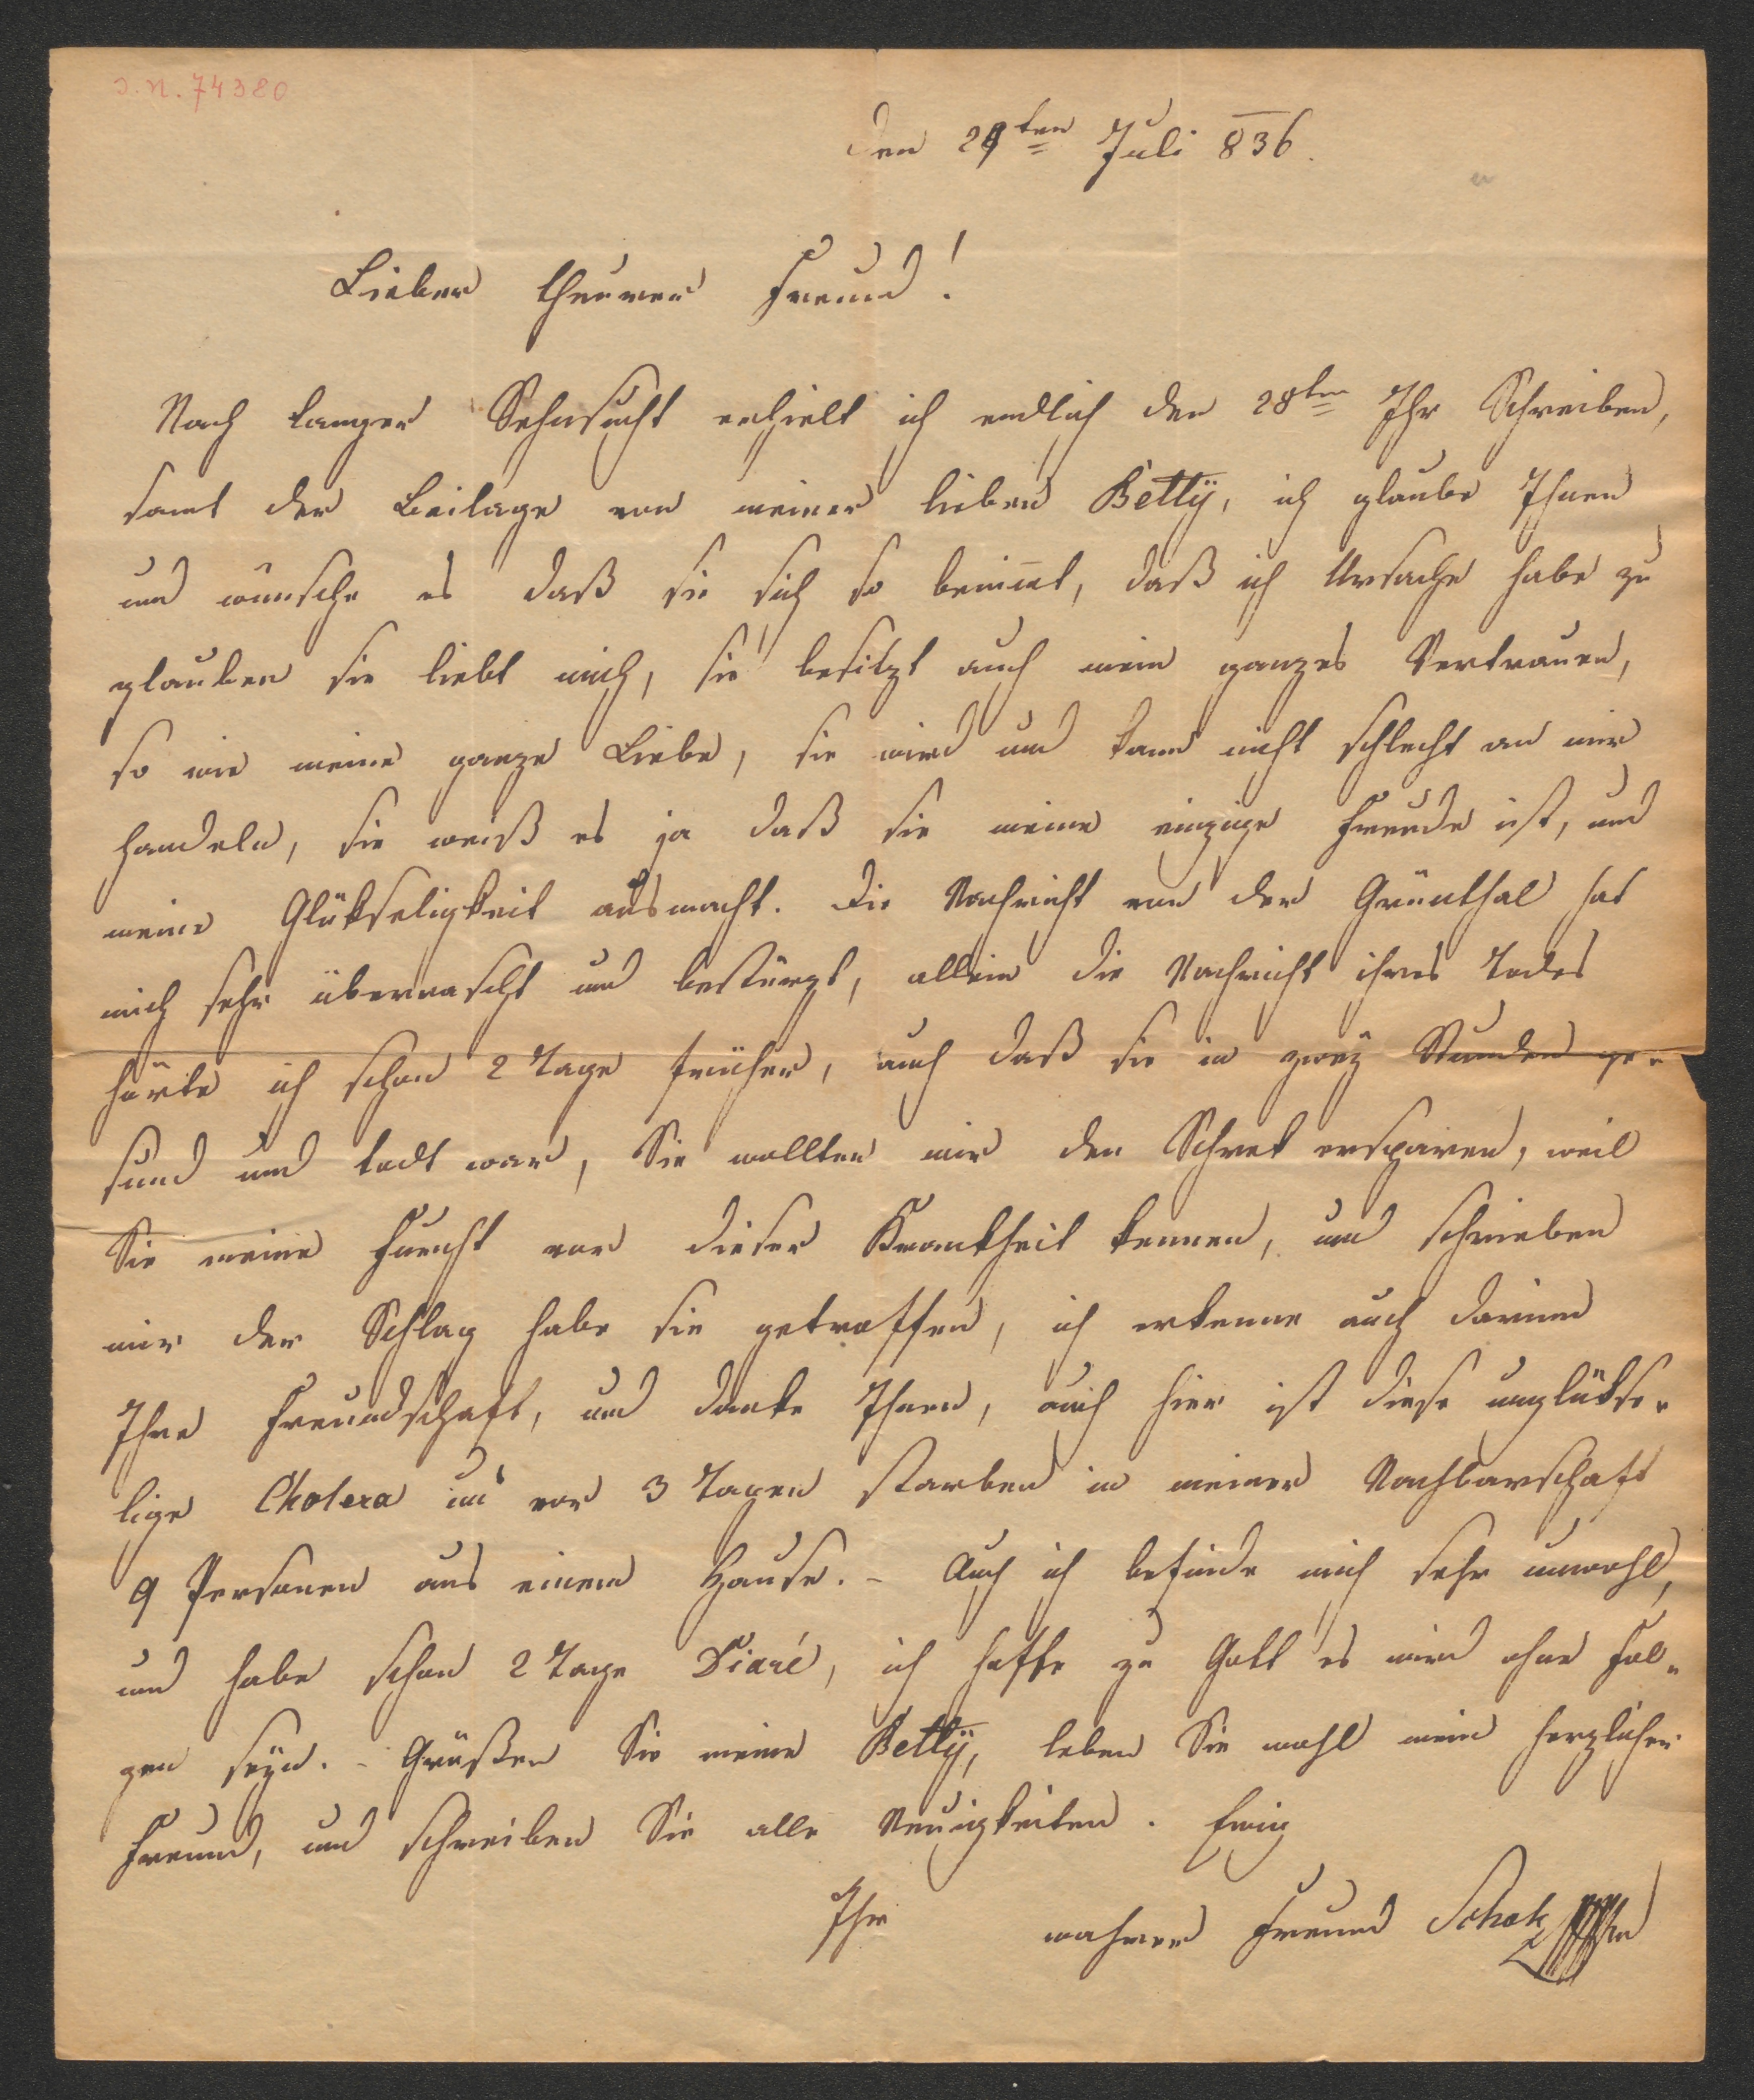 I. N. 74380
Den 29ten Juli 836.
Lieber theurer Freund!
Nach langer Sehnsucht erhielt ich endlich den 28ten Ihr Schreiben,
samt der Beilage von meiner lieben Bettÿ, ich glaube Ihnen
und wünsche es daß sie sich so benim̅t, daß ich Ursache habe zu
glauben sie liebt mich, sie besitzt auch mein ganzes Vertrauen,
so wie meine ganze Liebe, sie wird und kann nicht schlecht an mir
handeln, sie weiß es ja daß sie meine einzige Freude ist, und
meine Glükseligkeit ausmacht. Die Nachricht von der Grünthal hat
mich sehr überrascht und bestürzt, allein die Nachricht ihres Todes
hörte ich schon 2 Tage früher, auch daß sie in zweÿ Stunden ge-
sund und todt war, Sie wollten mir den Schrek ersparen, weil
Sie meine Furcht vor dieser Krankheit kennen, und schrieben
mir der Schlag habe sie getroffen, ich erkenne auch darinn
Ihre Freundschaft, und danke Ihnen, auch hier ist diese unglükse-
lige Cholera un̅ vor 3 Tagen starben in meiner Nachbarschaft
9 Personen aus einem Hause. - Auch ich befinde mich sehr unwohl,
und habe schon 2 Tage Diaré, ich hoffe zu Gott es wird ohne Fol-
gen seÿn. - Grüßen Sie meine Bettÿ, leben Sie wohl mein herzlicher
Freund, und schreiben Sie alle Neuigkeiten. Ewig
Ihr wahrer Freund Scholz